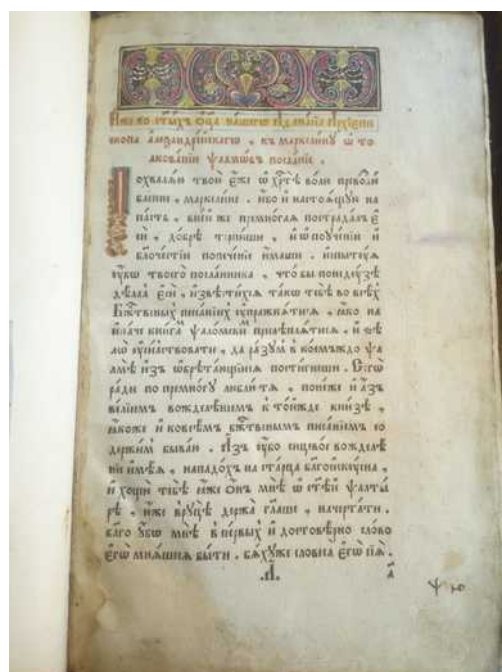 Иже во ст҃ыхъ Оц҃а нашегѡ Аѳана́сїа Архїепи
скопа Алеѯандрі́йскагѡ , къ маркелі́нꙋ ѡ то
лкова́нїи ѱалмѡ́въ посла́нїе .
Похвалѧ́ю твоѐ є҆́же ѡ҆ хр҇тѣ̀ во́ли
маркелі́не . и҆́бо и҆ настоѧ́щꙋю на
па́сть , в не́й же премно́гаѧ пострада́лъ є҆
сѝ , до́брѣ терпи́ши , и҆ ѡ҆ поꙋче́нїи и҆
блгоче́стїи попече́нїе и҆́маши . и҆спытꙋѧ
ᲂу҆́бѡ твоего̀ посла́нника , что̀ бы
дѣ́лалъ є҆сѝ , и҆звѣсти́хсѧ та́кѡ тебѣ̀ во всѣ́хъ
Бж҃твеныхъ писа́нїихъ ᲂу҆пражнѧ́тисѧ ,
па́че кни́га ѱало́мски прилѣплѧ́тисѧ , и҆
да ра́зꙋм в коемъждо ѱа
лмѣ̀
ра́ди по премно́гꙋ люблю́ тѧ , поне́же и҆ а҆́зъ
ве́лїемъ вожделѣ́нїемъ к то́йжде кни́зѣ ,
ꙗ҆́коже и҆ ко всѣ́мъ бж҃твенымъ писа́нїемъ со
держи́м быва́ю . А҆́зъ ᲂу҆́бо сицево́е вожделѣ́
нїе и҆мѣ́ѧ , нападо́хъ на ста́рца
и҆ хощꙋ̀ тебѣ̀ є҆́же ѻ҆́нъ мнѣ̀ ѡ҆ ст҃ѣ́й ѱалты́
рѣ , ю҆́же врꙋцѣ̀ держа̀ гл҃аше , начерта́ти .
бл҃го ᲂу҆́бѡ мнѣ̀ в пе́рвыхъ и҆ достовѣ́рно сло́во
є҆гѡ̀ мнѧ́шесѧ бы́ти . бѧ́хꙋ же словеса̀ є҆гѡ̀ сїѧ̀ .
.А҃.
а҃